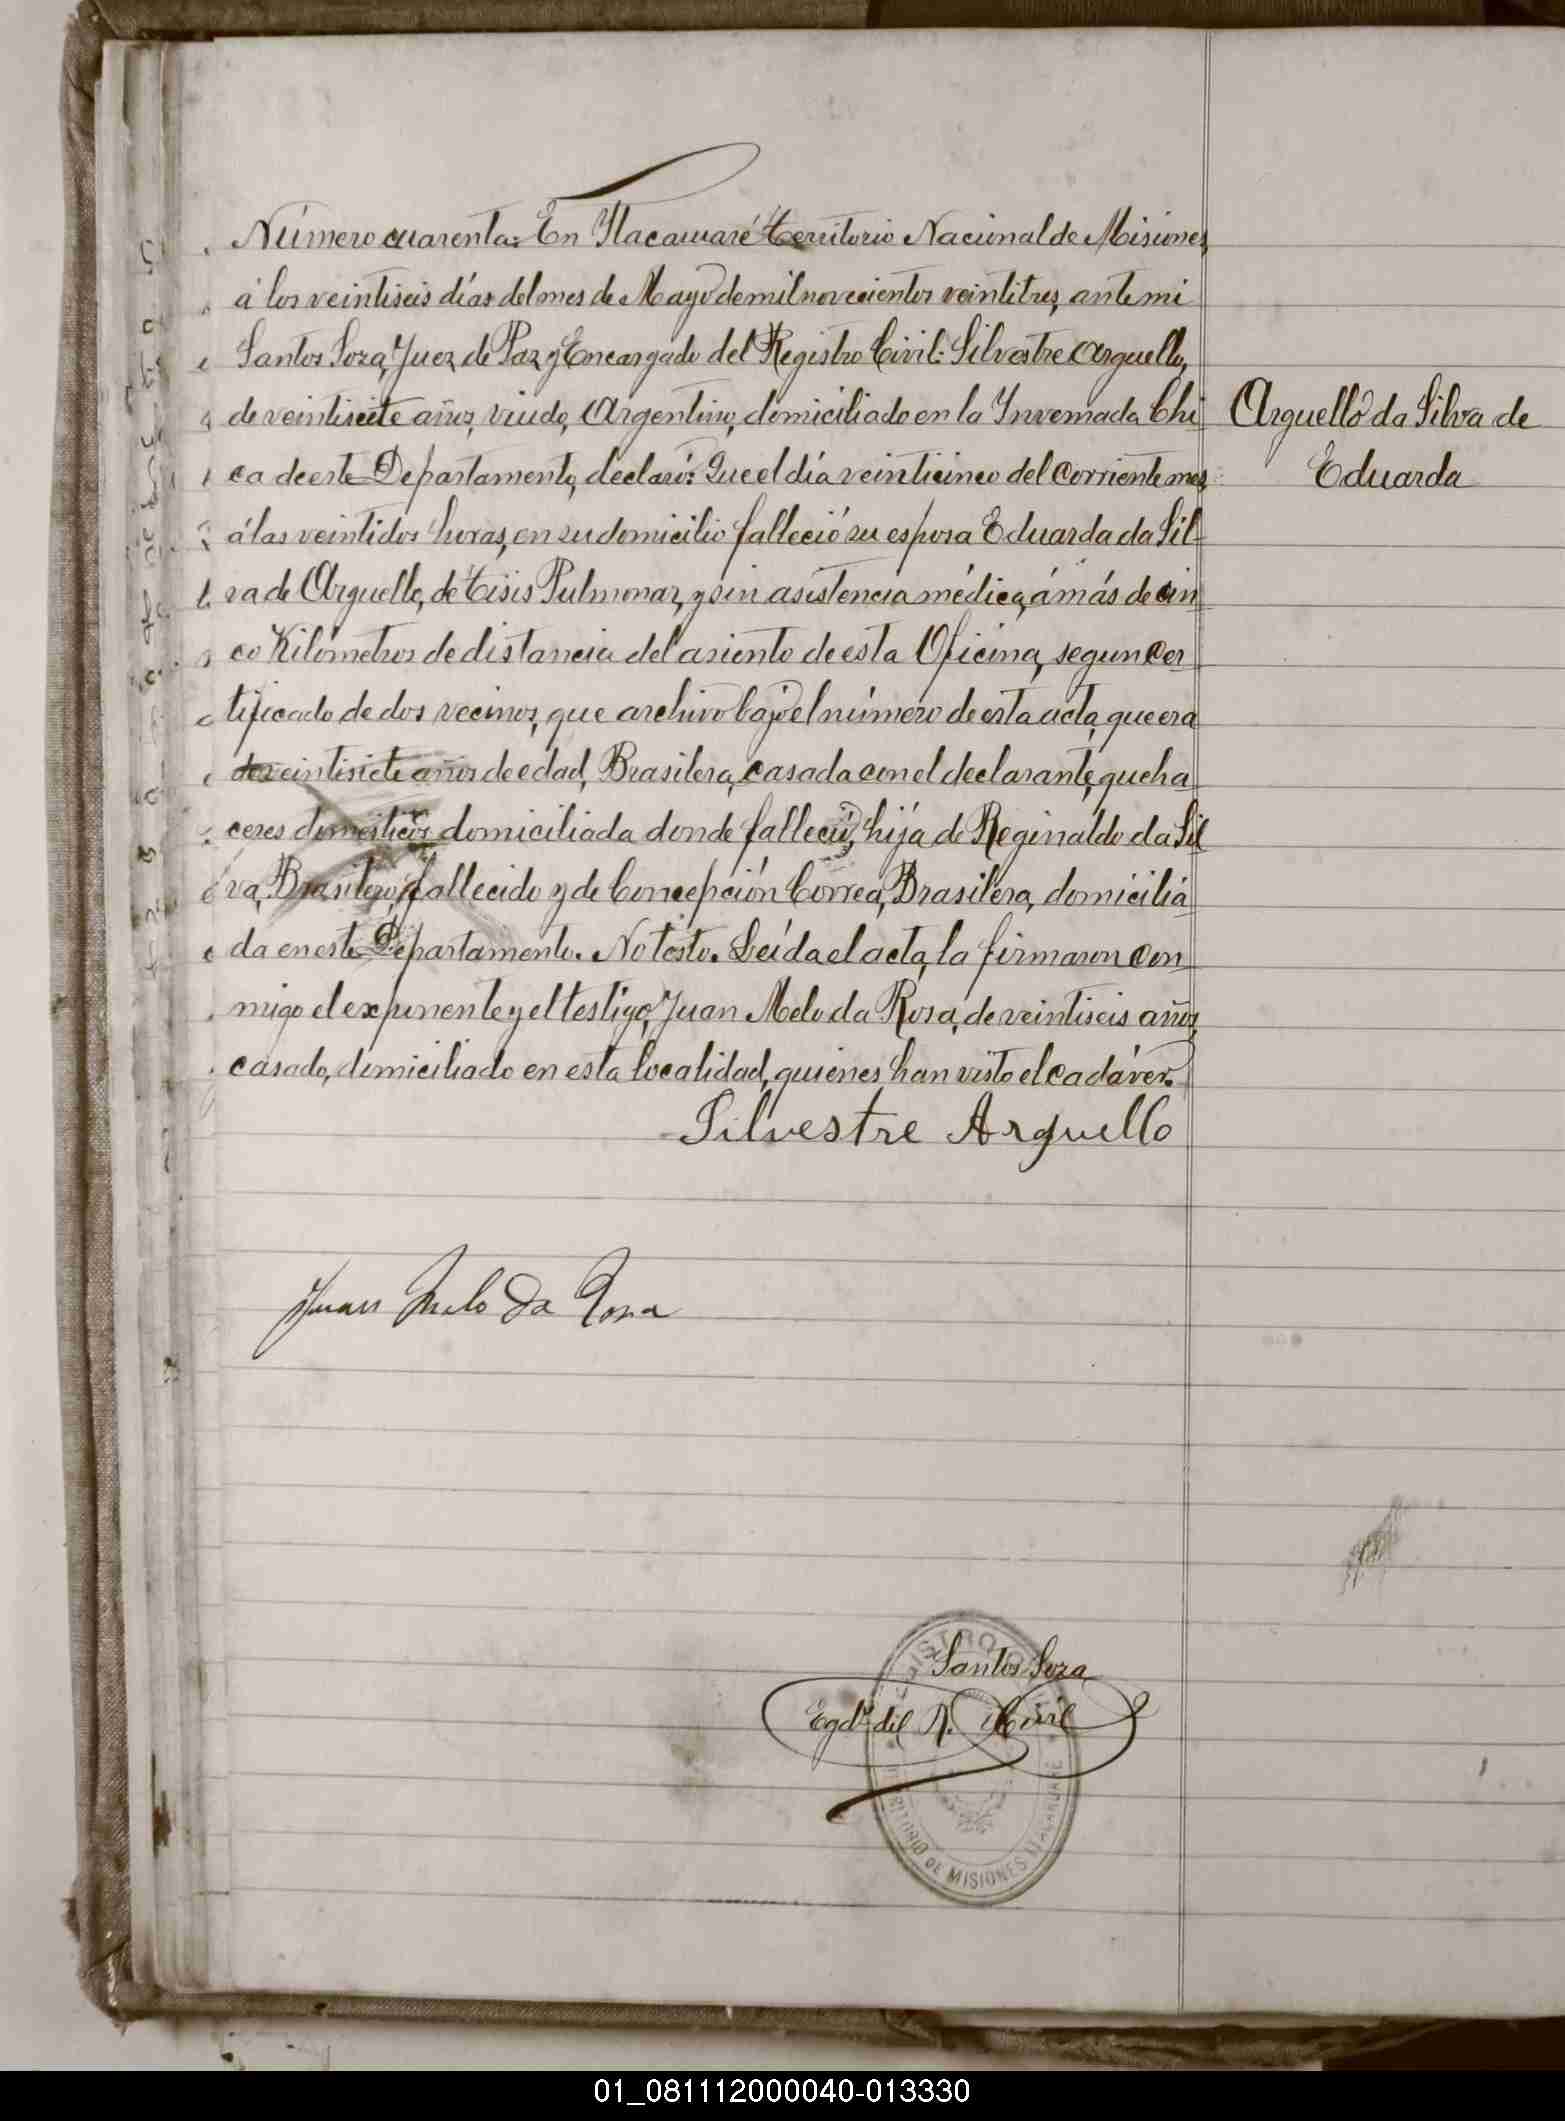 Número cuarenta: En Itacaruaré territorio Nacional de Misiones,
á los veintiseis días del mes de Mayo de mil novecientos veintitres, ante mi
Santos Soza, Juez de Paz y Encargado del Registro Civil: Silvestre Arguello,
de veintisiete años, viudo, Argentino, domiciliado en la Invernada Chi
ca de este Departamento, declaró: Que el día veinticinco del corriente mes,
á las veintidos horas, en su domicilio falleció su esposa Eduarda da Sil-
va de Arguello, de tisis Pulmonar, y sin asistencia médica, á más de cin
co Kilómetros de distancia del asiento de esta Oficina, segun cer
tificado de dos vecinos, que archivo bajo el número de esta acta, que era
de veintisiete años de edad, Brasilera, casada con el declarante, queha
ceres domésticos domiciliada donde falleció, hija de Reginaldo da Sil
va, Brasilero, fallecido y de Concepción Correa, Brasilera, domicilia
da en este Departamento. No testo. Leída el acta, la firmaron con
migo el exponente y el testigo, Juan Melo da Rosa, de veintiseis años,
casado, domiciliado en esta localidad, quienes han visto el cadáver.
Arguello da Silva de
Eduarda
Silvestre Arguello
Juan Melo da Rosa
Santos Soza
Egdo. del R. Civil
REGISTRO CIVIL
TERRITORIO DE MISIONES ITACARUARÉ
01_081112000040-013330